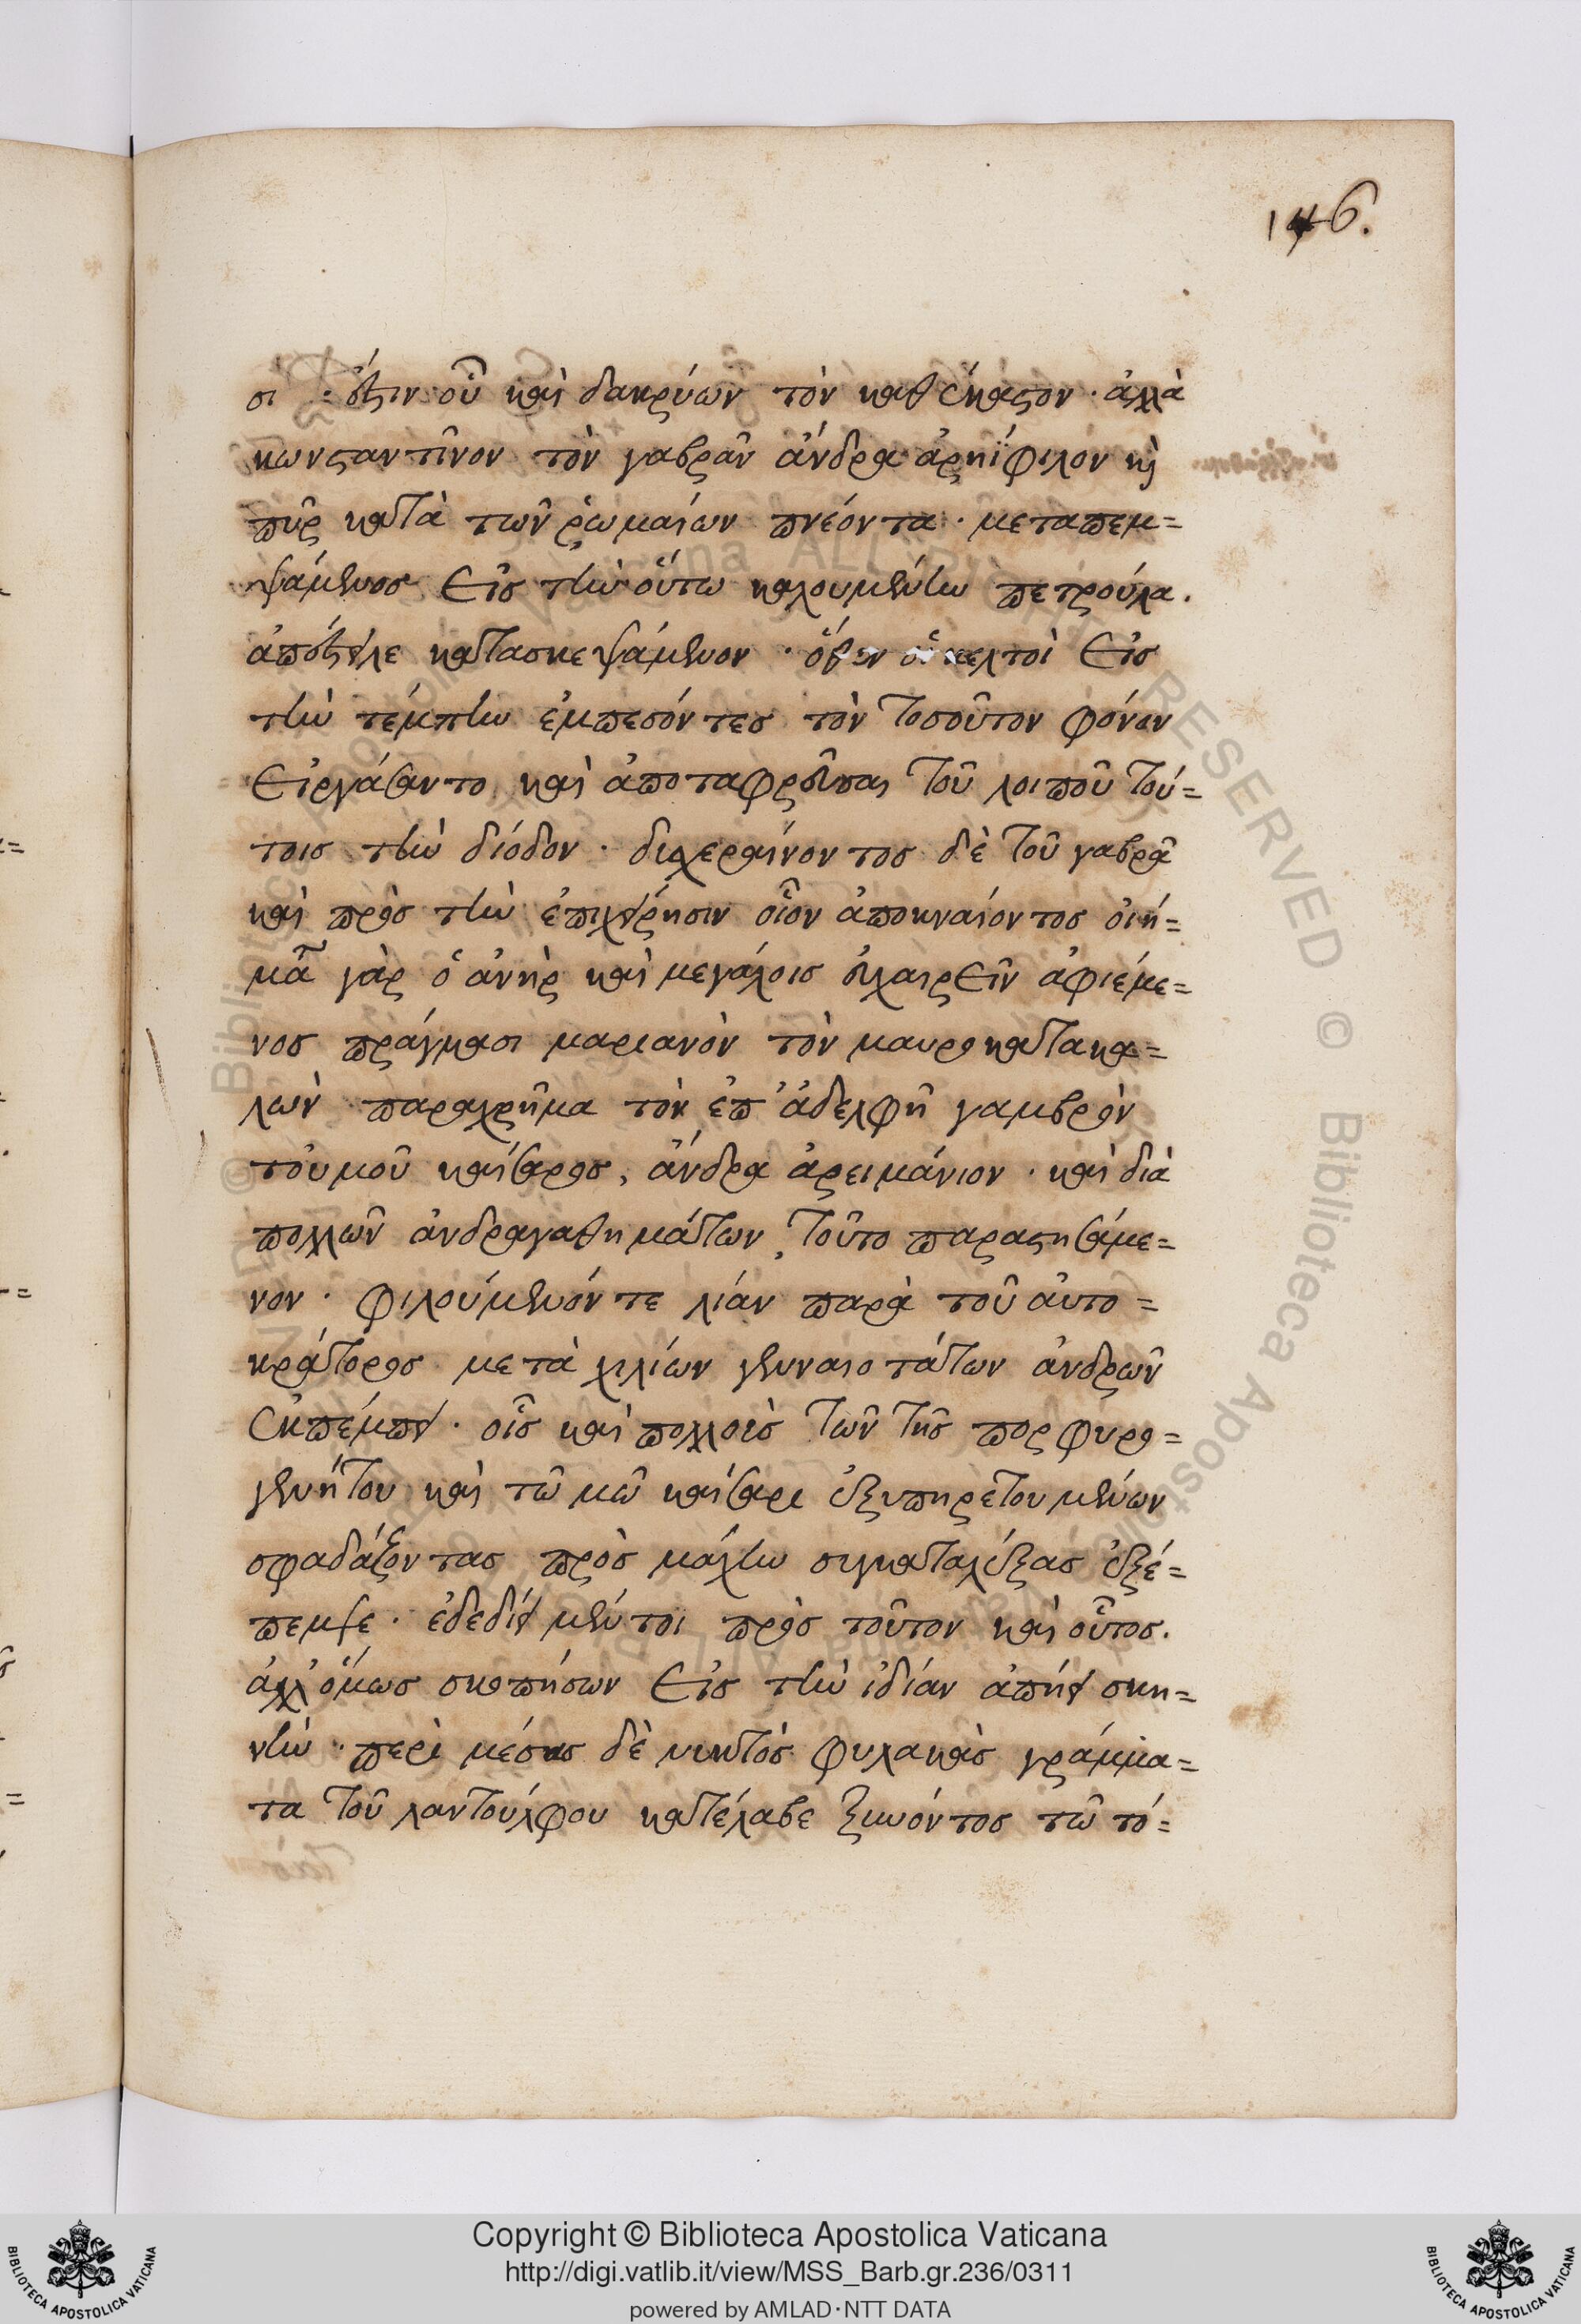 146.
σι : ἔστιν οὗ καὶ δακρύων τὸν καθέκαστον · ἀλλὰ
κωνσταντῖνον τὸν γαβρᾶν ἄνδρα ἀρηΐφιλον κỳ
πῦρ κατὰ τῶν ῥωμαίων πνέοντα · μεταπεμ=
ψάμενος εἰς τὴν οὕτω καλουμένην πετρούλα.
ἀπέστειλε κατασκεψάμενον · ὅθεν οἱ κελτοὶ εἰς
τὴν τέμπην ἐμπεσόντες τὸν τοσοῦτον φόνον
εἰργάσαντο, καὶ ἀποταφρεῦσαι τοῦ λοιποῦ τού=
τοις τὴν δίοδον · δυσχεραίνοντος δὲ τοῦ γαβρᾶ
καὶ πρὸς τὴν ἐπιχείρησιν οἷον ἀποκναίοντος οἰή=
μα γὰρ ὁ ἀνὴρ καὶ μεγάλοις ἐγχειρεῖν ἀφιέμε=
νος πράγμασι μαριανὸν τὸν μαυροκατακα=
λὼν παραχρῆμα τὸν ἐπ' ἀδελφῇ γαμβρὸν
τοὐμοῦ καίσαρος, ἄνδρα ἀρειμάνιον · καὶ διὰ
πολλῶν ἀνδραγαθημάτων, τοῦτο παραστησάμε=
νον · φιλούμενόν τε λίαν παρὰ τοῦ αὐτο=
κράτορος μετὰ χιλίων γενναιοτάτων ἀνδρῶν
ἐκπέμπει · οἷς καὶ πολλοὺς τῶν τῆς πορφυρο=
γεννήτου καὶ τῶ μῶ καίσαρι ἐξυπηρετουμένων
σφαδάζοντας πρὸς μάχην συγκαταλέξας ἐξέ=
πεμψε · ἐδεδίει μέντοι πρὸς τοῦτον καὶ οὗτος.
ἀλλ' ὅμως σκοπήσων εἰς τὴν ἰδίαν ἀπῄει σκη=
νὴν · περὶ μέσας δὲ νυκτὸς φυλακὰς γράμμα=
τα τοῦ λαντούλφου κατέλαβε ξυνόντος τῶ τό=
Copyright © Biblioteca Apostolica Vaticana
http://digi.vatlib.it/view/MSS_Barb.gr.236/0311
powered by AMLAD·NTT DATA